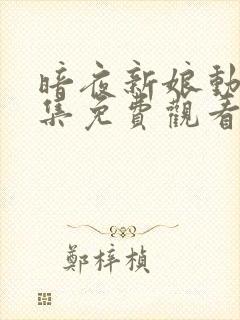 暗夜新娘動
集免費觀看
鄭梓楨